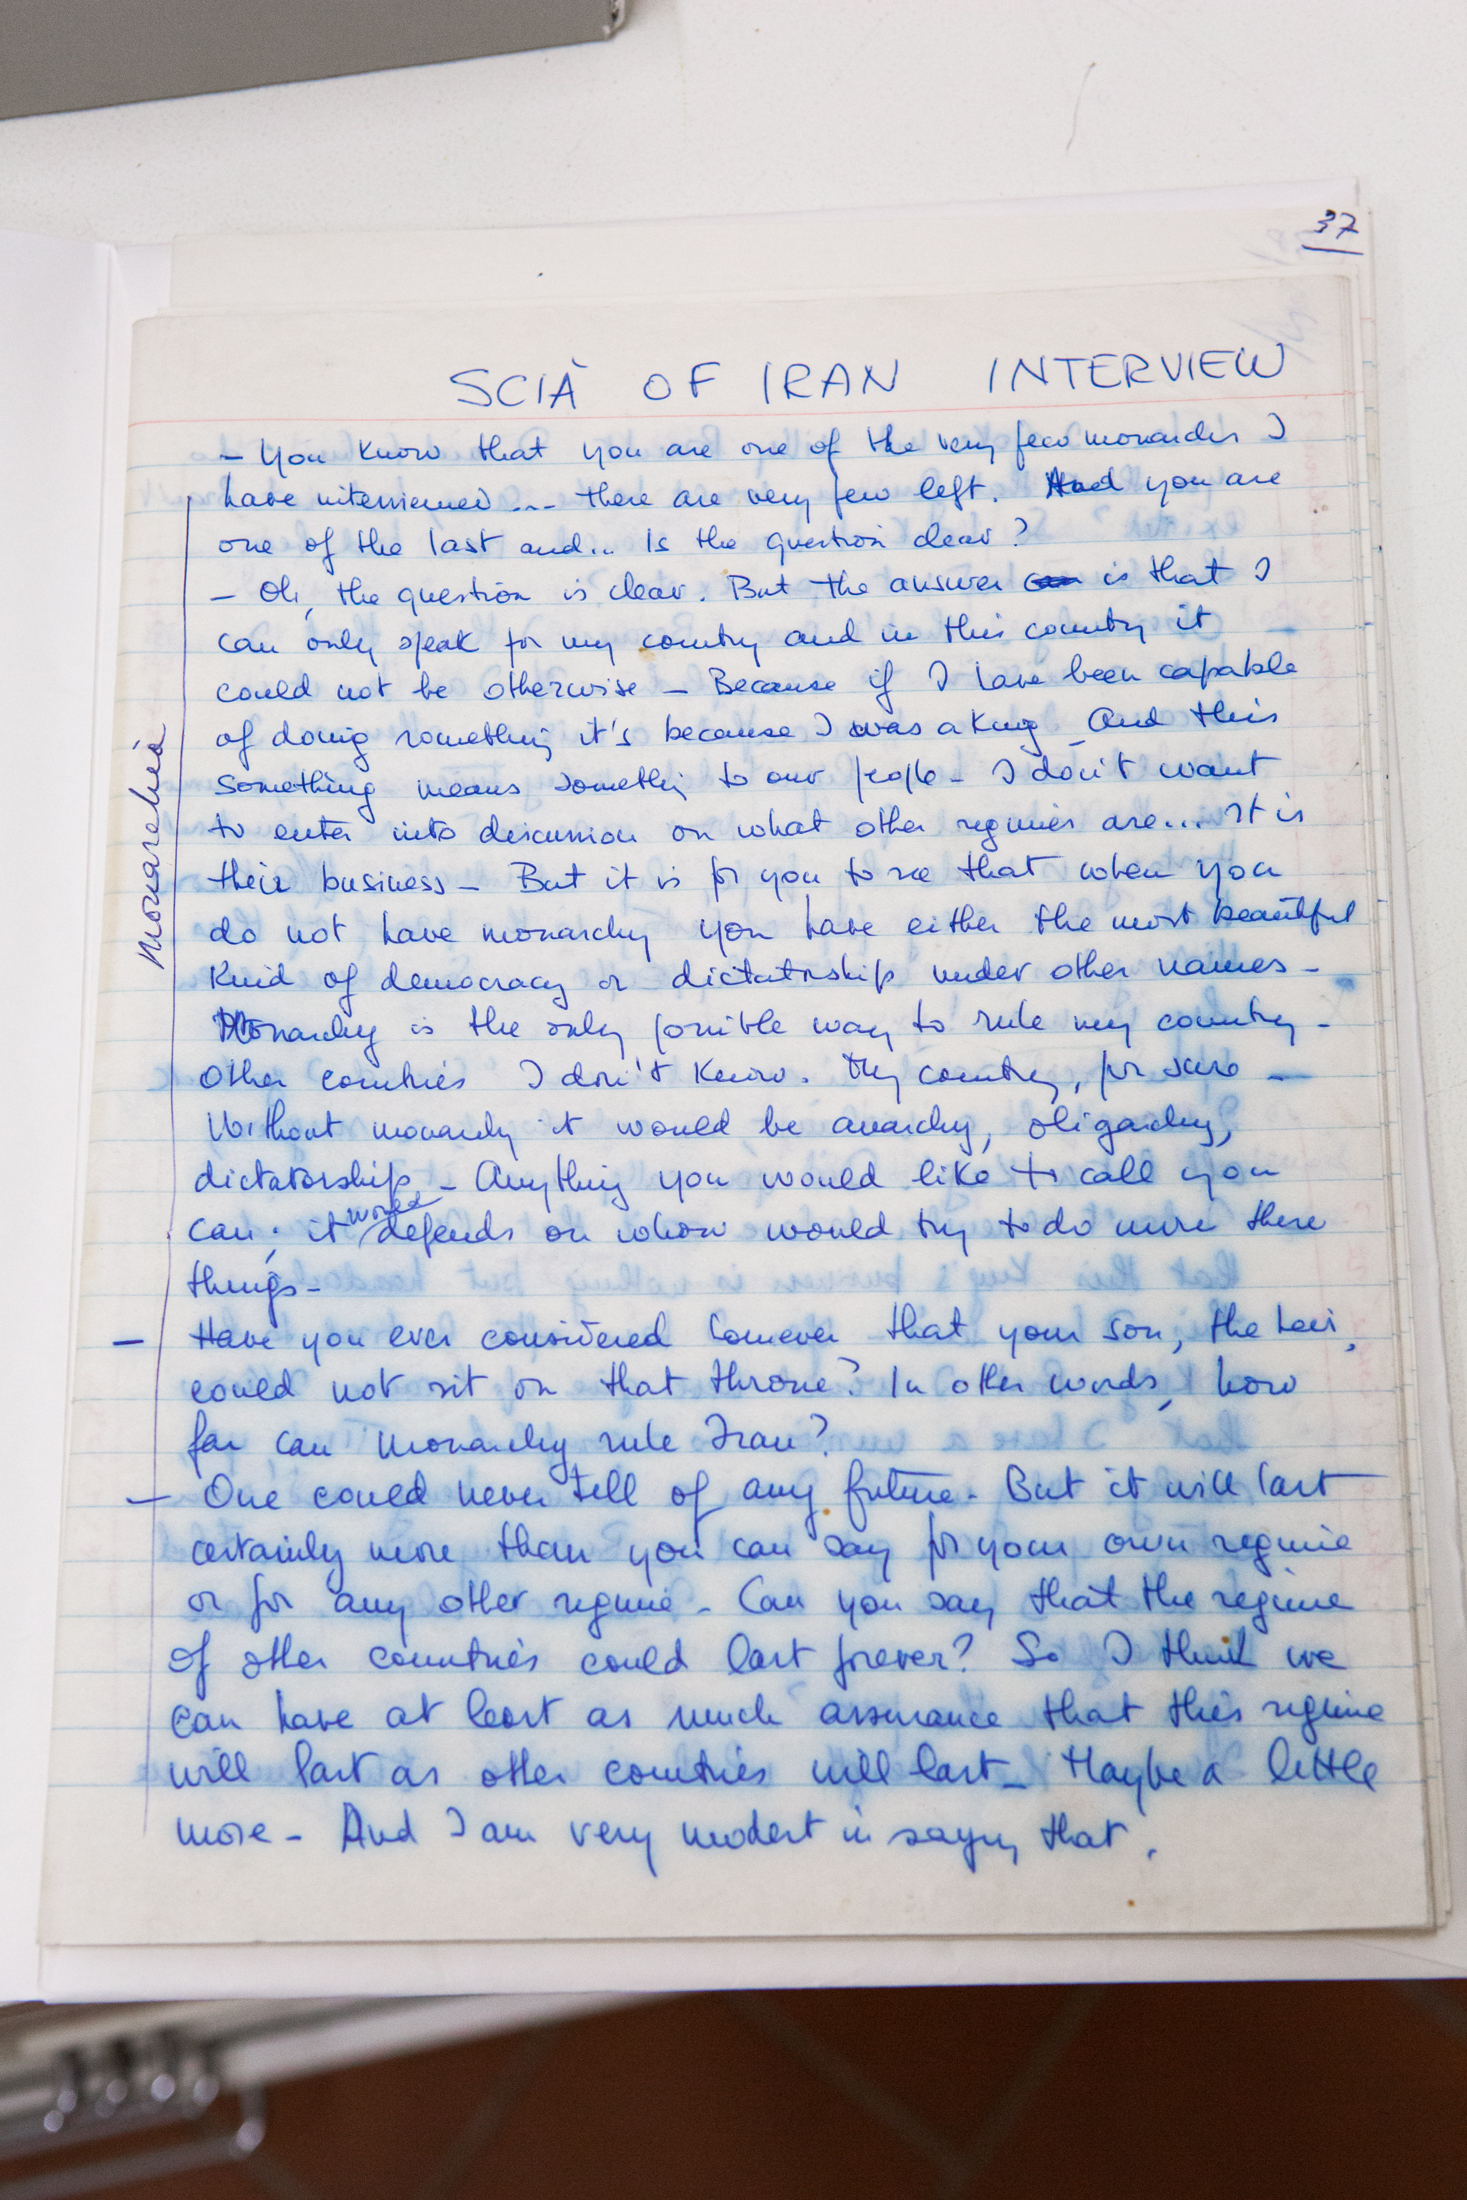 37
SCIÀ OF IRAN INTERVIEW
- You know that you are one of the very few monarchs I
have interviewed ... there are very few left. And you are
one of the last and... Is the question clear?
- Oh, the question is clear. But the answer is that I
can only speak for my country and in this country it
could not be otherwise - Because if I have been capable
of doing something it's because I was a King - And this
something means something to our people - I don't want
to enter into discussion on what other regimes are... It is
their business - But it is for you to see that when you
do not have monarchy you have either the most beautiful
Kind of democracy or dictatorship under other names -
Monarchy is the only possible way to rule my country -
Other countries I don't know. My country, for sure -
Without monarchy it would be anarchy, oligarchy,
dictatorship - Anything you would like to call you
can; it would depends on whow would try to do more these
things -
- Have you ever considered however that your son, the heir,
could not sit on that throne? In other words, how
far can Monarchy rule Iran?
- One could never tell of any future. But it will last
certainly more than you can say for your own regime
or for any other regime - Can you say that the regime
of other countries could last forever? So I think we
can have at least as much assurance that this regime
will last as other countries will last - Maybe a little
more - And I am very modest in saying that.
Monarchia